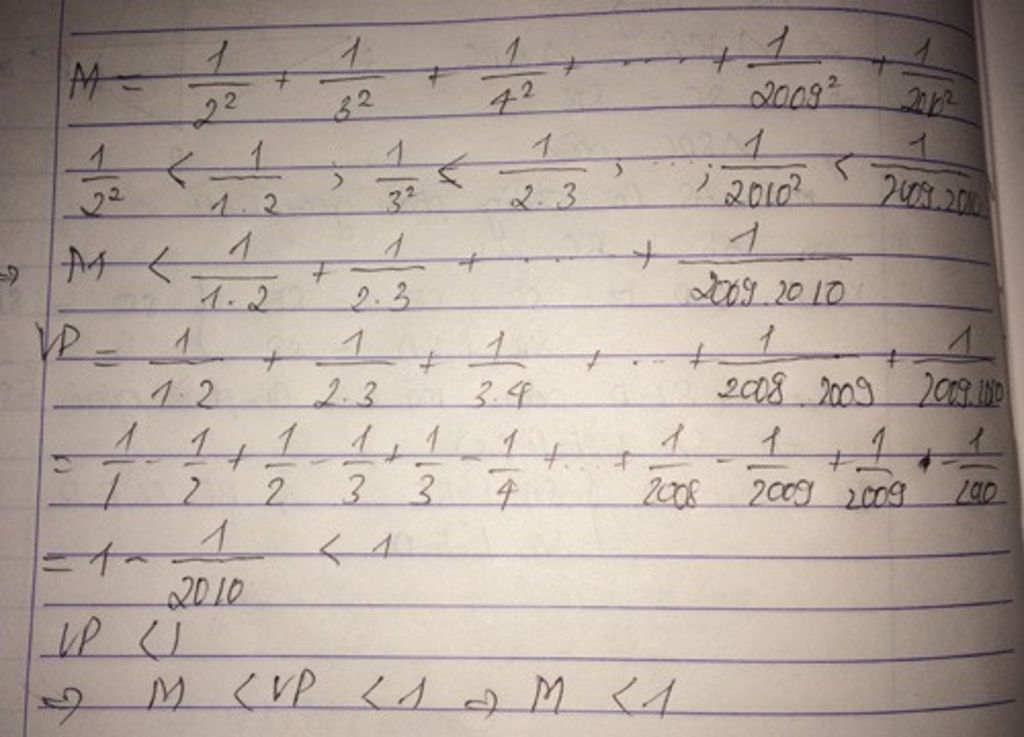 M = 1/2² + 1/3² + 1/4² + ..... + 1/2009² + 1/2010²
1/2² < 1/1.2 ; 1/3² < 1/2.3 ; ...; 1/2010² < 1/2009.2010
⇒ M < 1/1.2 + 1/2.3 + ..... + 1/2009.2010
VP = 1/1.2 + 1/2.3 + 1/3.4 + ... + 1/2008.2009 + 1/2009.2010
= 1/1 - 1/2 + 1/2 - 1/3 + 1/3 - 1/4 + ... + 1/2008 - 1/2009 + 1/2009 - 1/2010
= 1 - 1/2010 < 1
VP < 1
⇒ M < VP < 1 ⇒ M < 1